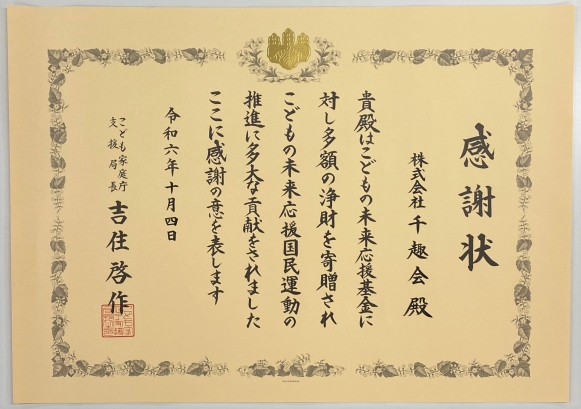 感謝状
株式会社千趣会殿
貴殿はこどもの未来応援基金に
対し多額の浄財を寄贈され
こどもの未来応援国民運動の
推進に多大な貢献をされました
ここに感謝の意を表します
令和六年十月四日
こども家庭庁
支援局長
吉住啓作